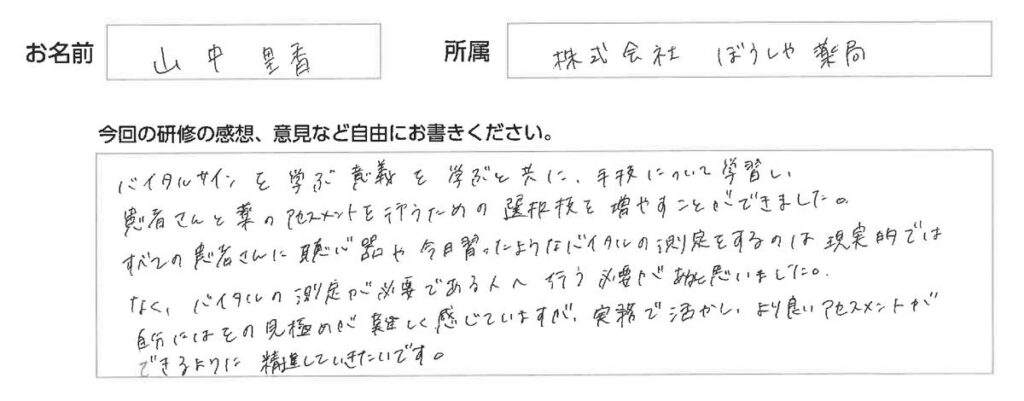 お名前 山中 里香 所属 株式会社 ぼうしや薬局
今回の研修の感想、意見など自由にお書きください。
バイタルサインを学ぶ意義を学ぶと共に、手技について学習し、
患者さんと薬のアセスメントを行うための選択枝を増やすことができました。
すべての患者さんに聴心器や今日習ったようなバイタルの測定をするのは現実的では
なく、バイタルの測定が必要である人へ行う必要があると思いました。
自分にはその見極めが難しく感じていますが、実務で活かし、より良いアセスメントが
できるように精進していきたいです。